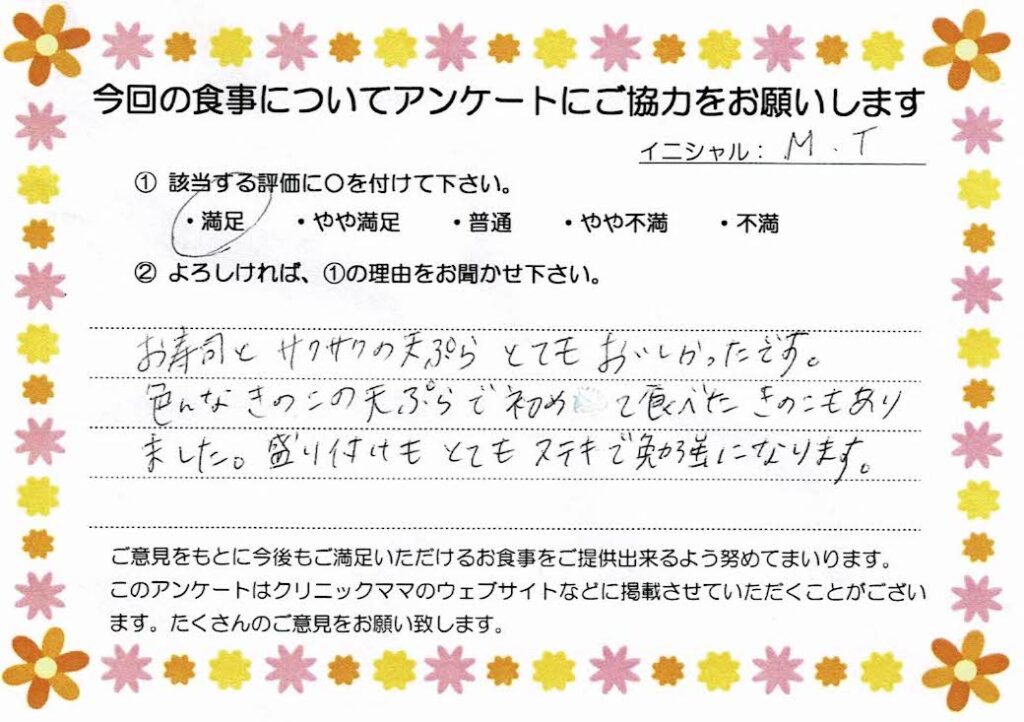 今回の食事についてアンケートにご協力をお願いします
イニシャル： M.T
① 該当する評価に〇を付けて下さい。
・満足 ・やや満足 ・普通 ・やや不満 ・不満
② よろしければ、①の理由をお聞かせ下さい。
お寿司と サクサクの天ぷら とても おいしかったです。
色んな きのこの天ぷらで 初めて食べた きのこもあり
ました。盛り付けも とても ステキで勉強になります。
ご意見をもとに今後もご満足いただけるお食事をご提供出来るよう努めてまいります。
このアンケートはクリニックママのウェブサイトなどに掲載させていただくことがござい
ます。たくさんのご意見をお願い致します。